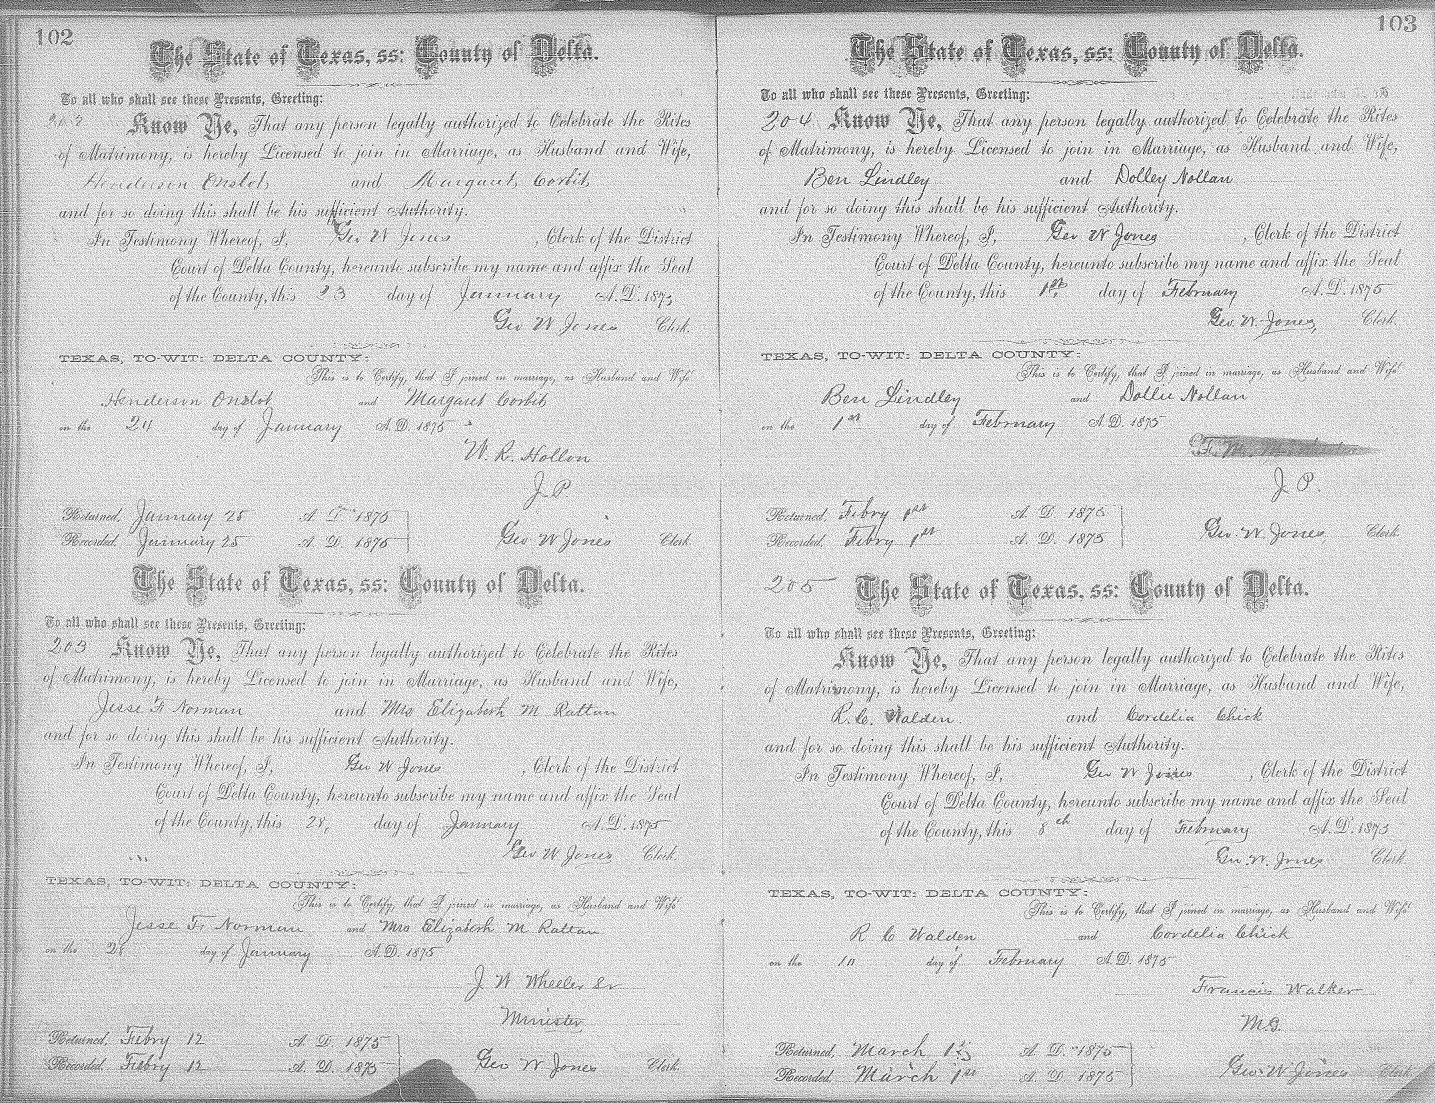 102
The State of Texas, ss: County of Delta.
To all who shall see these Presents, Greeting:
202 Know Ye, That any person legally authorized to Celebrate the Rites
of Matrimony, is hereby Licensed to join in Marriage, as Husband and Wife,
Henderson Onstot and Margaret Corbit
and for so doing this shall be his sufficient Authority.
In Testimony Whereof, I, Geo W Jones , Clerk of the District
Court of Delta County, hereunto subscribe my name and affix the Seal
of the County, this 23 day of January A.D. 1875
Geo W Jones Clerk.
TEXAS, TO-WIT: DELTA COUNTY:
This is to Certify, that I joined in marriage, as Husband and Wife
Henderson Onstot and Margaret Corbit
on the 24 day of January A.D. 1875
W. R. Hollon
J P
Returned, January 25 A. D. 1875
Recorded, January 25 A. D. 1875 Geo W Jones Clerk.
The State of Texas, ss: County of Delta.
To all who shall see these Presents, Greeting:
203 Know Ye, That any person legally authorized to Celebrate the Rites
of Matrimony, is hereby Licensed to join in Marriage, as Husband and Wife,
Jesse F Norman and Mrs Elizabeth M Rattan
and for so doing this shall be his sufficient Authority.
In Testimony Whereof, I, Geo W Jones , Clerk of the District
Court of Delta County, hereunto subscribe my name and affix the Seal
of the County, this 28, day of January A.D. 1875
Geo W Jones Clerk.
TEXAS, TO-WIT: DELTA COUNTY:
This is to Certify, that I joined in marriage, as Husband and Wife
Jesse F. Norman and Mrs Elizabeth M Rattan
on the 28 day of January A.D. 1875
J W Wheeler Sr
Minister
Returned, Febry 12 A. D. 1875
Recorded, Febry 12 A. D. 1875 Geo W Jones Clerk.
103
The State of Texas, ss: County of Delta.
To all who shall see these Presents, Greeting:
204 Know Ye, That any person legally authorized to Celebrate the Rites
of Matrimony, is hereby Licensed to join in Marriage, as Husband and Wife,
Ben Lindley and Dolley Nollan
and for so doing this shall be his sufficient Authority.
In Testimony Whereof, I, Geo W Jones , Clerk of the District
Court of Delta County, hereunto subscribe my name and affix the Seal
of the County, this 1st day of February A.D. 1875
Geo. W. Jones, Clerk.
TEXAS, TO-WIT: DELTA COUNTY:
This is to Certify, that I joined in marriage, as Husband and Wife
Ben Lindley and Dollie Nollan
on the 1st day of February A.D. 1875
J. P.
Returned, Febry 1st A. D. 1875
Recorded, Febry 1st A. D. 1875 Geo. W. Jones, Clerk.
205 The State of Texas, ss: County of Delta.
To all who shall see these Presents, Greeting:
Know Ye, That any person legally authorized to Celebrate the Rites
of Matrimony, is hereby Licensed to join in Marriage, as Husband and Wife,
R. C. Walden. and Cordelia Chick
and for so doing this shall be his sufficient Authority.
In Testimony Whereof, I, Geo W Jones , Clerk of the District
Court of Delta County, hereunto subscribe my name and affix the Seal
of the County, this 8th day of February A.D. 1875
Geo. W. Jones Clerk.
TEXAS, TO-WIT: DELTA COUNTY:
This is to Certify, that I joined in marriage, as Husband and Wife
R C Walden and Cordelia Chick
on the 10 day of February A.D. 1875
Francis Walker
M.G.
Returned, March 1st A. D. 1875
Recorded, March 1st A. D. 1875 Geo. W Jones Clerk